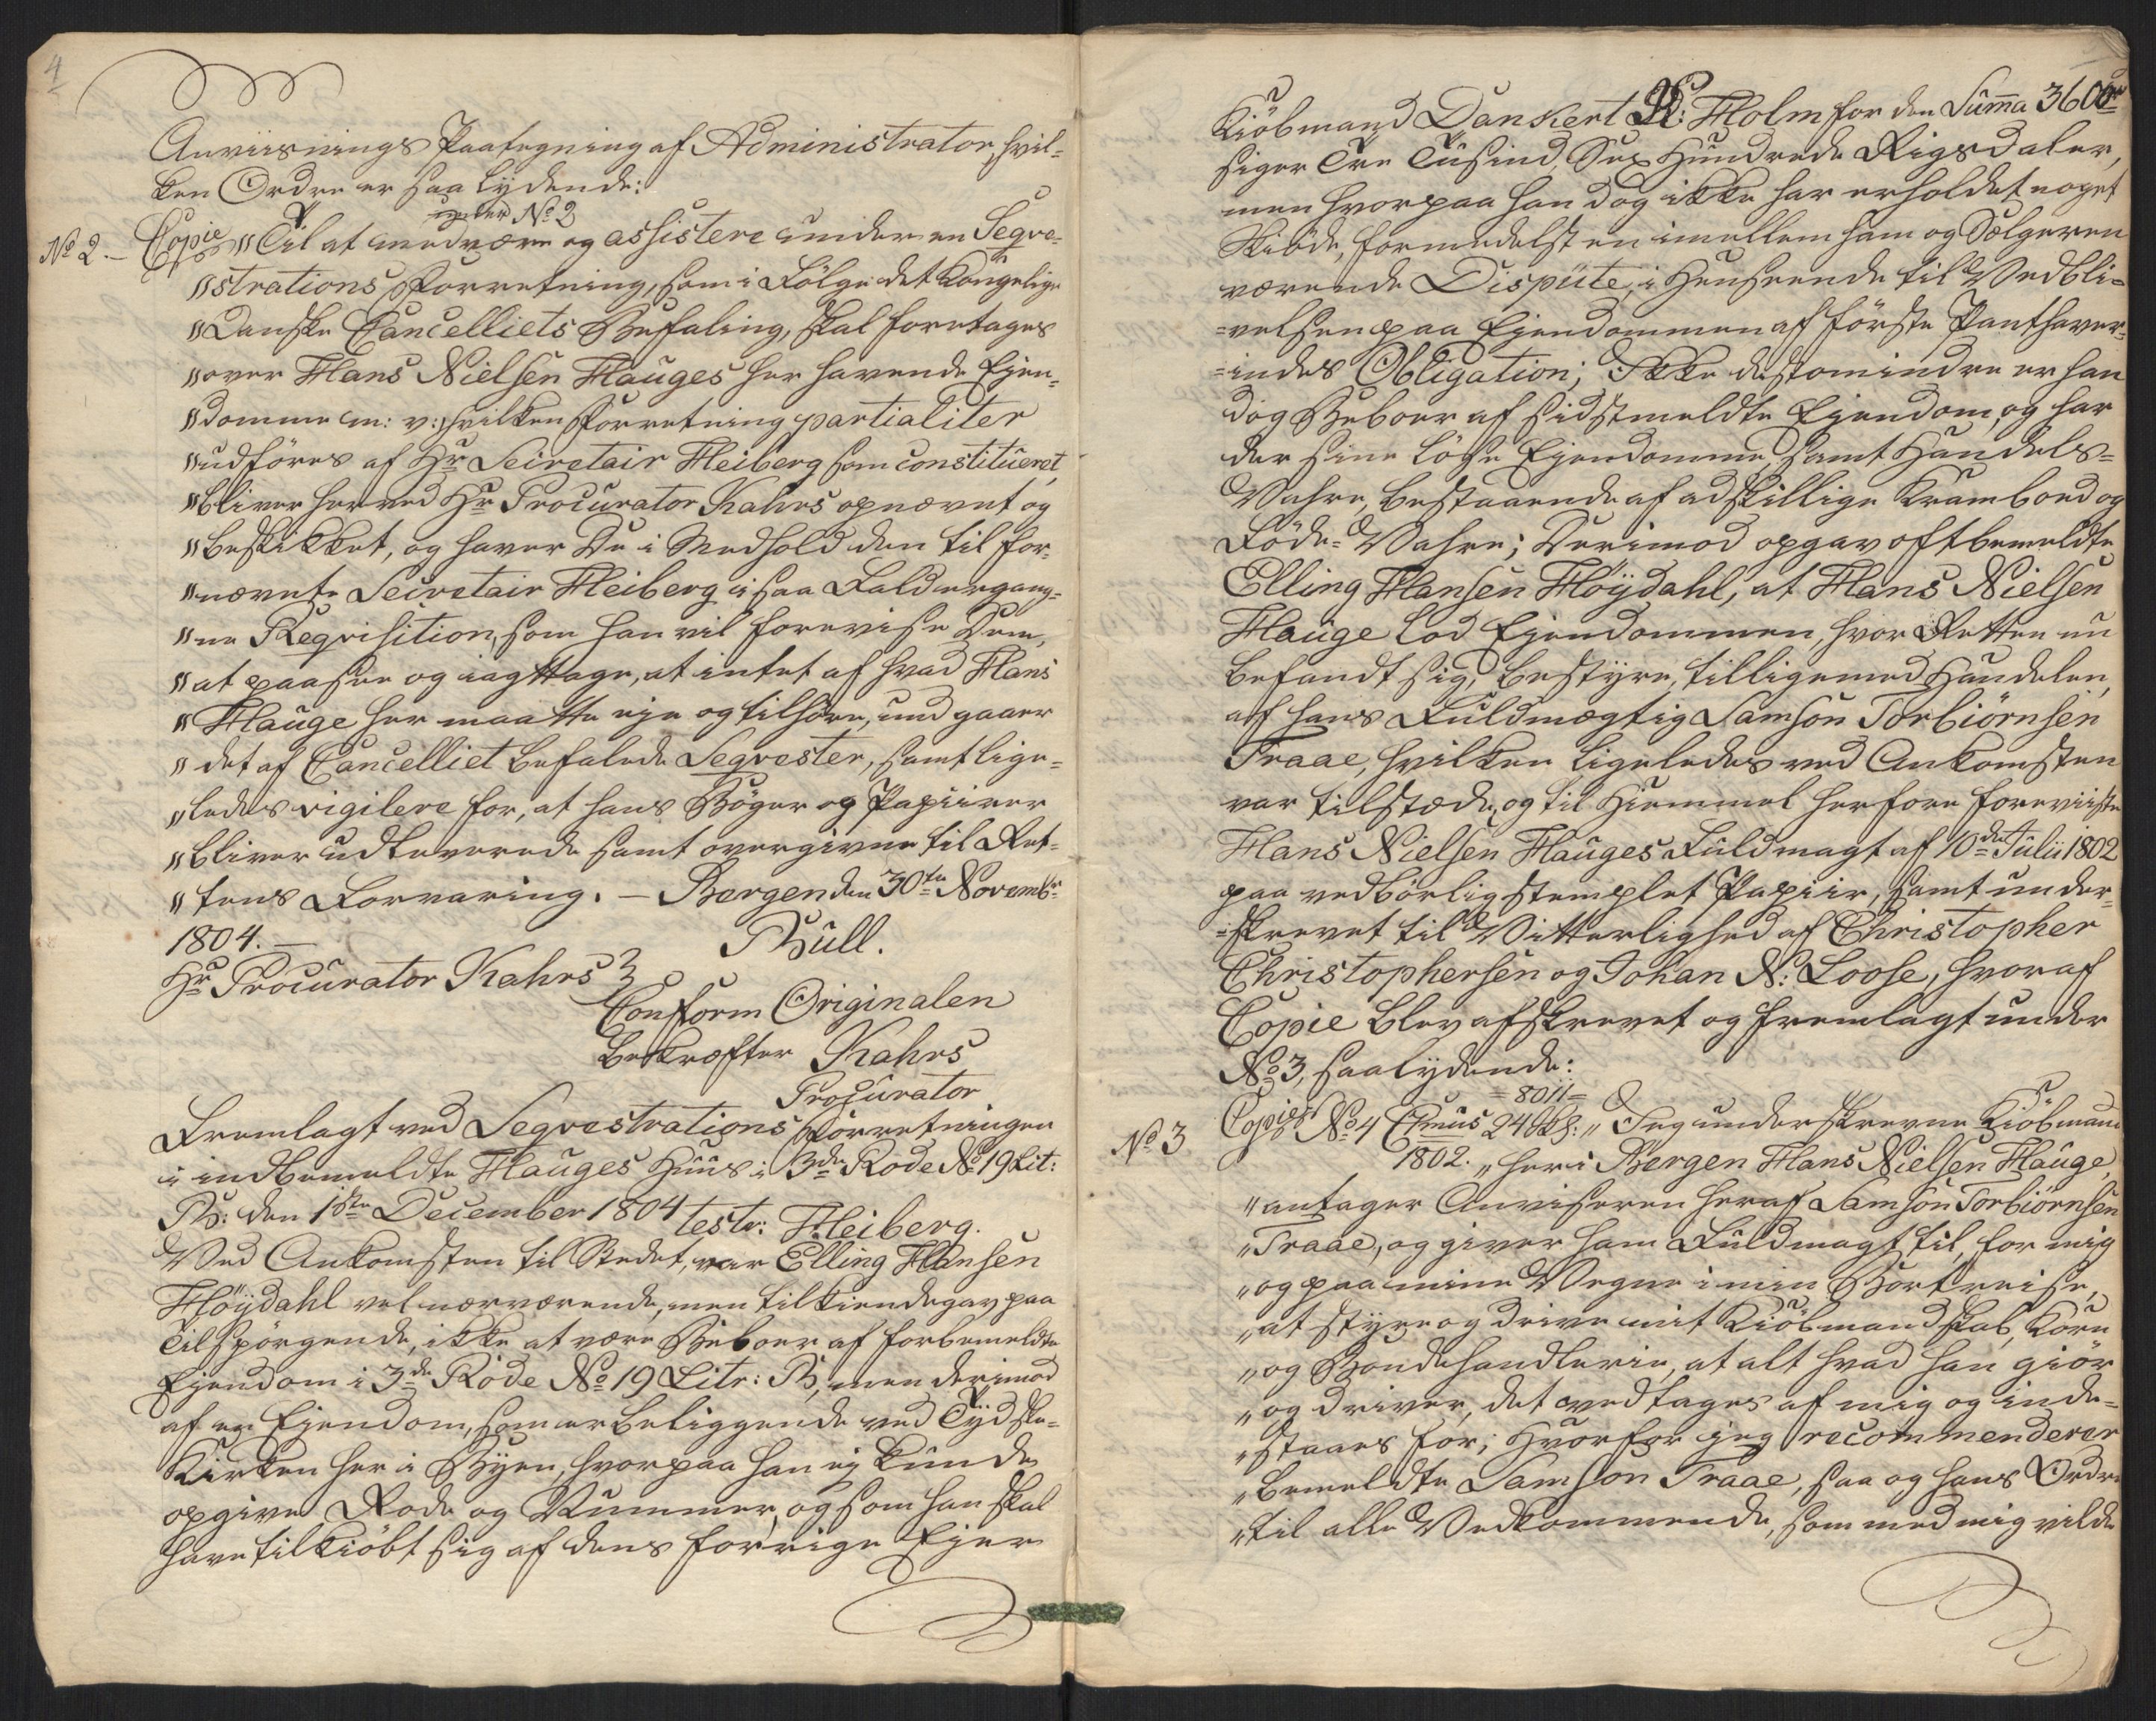 4
Anviisnings Paategning af Administrator, hvil-
ken Ordre er saa lydende:
under No 2
No 2. – Copie "Til at medvære og assistere under en Seqve-
"strations Forretning, som i Fölge det Kongelige
"Danske Cancelliets Befaling, skal foretages
"over Hans Nielsen Hauges her havende Ejen-
"domme m: v:, hvilken Forretning partialiter
"udföres af Hr Secretair Heiberg som constitueret,
"bliver herved Hr Procurator Kahrs opnævnt og
"beskikket, og haver De i Medhold den til for-
"nævnte Secretair Heiberg i saa Fald ergang-
"ne Reqvisition, som han vil forevise Dem,
"at paasee og iagttage, at intet af hvad Hans
"Hauge her maatte eje og tilhöre, und gaaer
"det af Cancelliet befalede Seqvester, samt lige-
"ledes vigilere for, at hans Böger og Papiirer
"bliver udleverede samt overgivne til Ret-
"tens Forvaring. – Bergen den 30te Novembr
1804. – Bull.
Hr Procurator Kahrs
Conform Originalen
bekræfter Kahrs
Procurator
Fremlagt ved Seqvestrations Forretningen
i indbemeldte Hauges Huus i 3de Rode No 19 Lit:
B: den 1ste December 1804 test: Heiberg.
Ved Ankomsten til Stedet, var Elling Hansen
Höydahl vel nærværende, men tilkiendegav paa
Tilspörgende, ikke at være Beboer af forbemeldte
Ejendom i 3de Rode No 19 Litr: B, men derimod
af en Ejendom, som er beliggende ved Tydske-
Kirken her i Byen, hvorpaa han ej kunde
opgive Rode og Nummer, og som han skal
have tilkiöbt sig af dens forrige Ejer
Kiöbmand Dankert K: Holm for den Summa 3600 rd
siger Tre Tusind, Sex Hundrede Rigsdaler,
men hvorpaa han dog ikke har erholdet noget
Skiöde, formedelst en imellem ham og Sælgeren
værende Dispute, i Henseende til Vedbli-
=velsen paa Ejendommen af förste Panthaver-
=indes Obligation; Ikke destomindre er han
dog Beboer af sidstmeldte Ejendom, og har
der sine löse Ejendomme, samt Handels-
Vahre, bestaaende af adskillige Kramboed og
Föde-Vahre; Derimod opgav oftbemeldte
Elling Hansen Höydahl, at Hans Nielsen
Hauge lod Ejendommen, hvor Retten nu
befandt sig, bestyre, tilligemed Handelen,
af hans Fuldmægtig Samson Torbiörnsen
Traae, hvilken ligeledes ved Ankomsten
var tilstæde, og til Hiemmel herfore foreviiste
Hans Nielsen Hauges Fuldmagt af 10de Julii 1802
paa vedbörlig stemplet Papiir, samt under-
=skrevet til Vitterlighed af Christopher
Christophersen og Johan N: Loose, hvoraf
Copie blev afskrevet og fremlagt under
No 3, saalydende:
=8011=
No 3 Copie No 4 24 : "Jeg underskrevne Kiöbmand
1802. "her i Bergen Hans Nielsen Hauge,
"antager Anviseren heraf Samson Torbiörnsen
"Traae, og giver ham Fuldmagt til, for mig
"og paa mine Vegne i min Bortreise,
"at styre og drive mit Kiöbmandskab, Korn
"og Bondehandlerie, at alt hvad han giör
"og driver, det vedtages af mig og inde-
"staaes for; Hvorfor jeg recommenderer
"bemeldte Samson Traae, saa og hans Ordre
"til alle Vedkommende, som med mig vilde